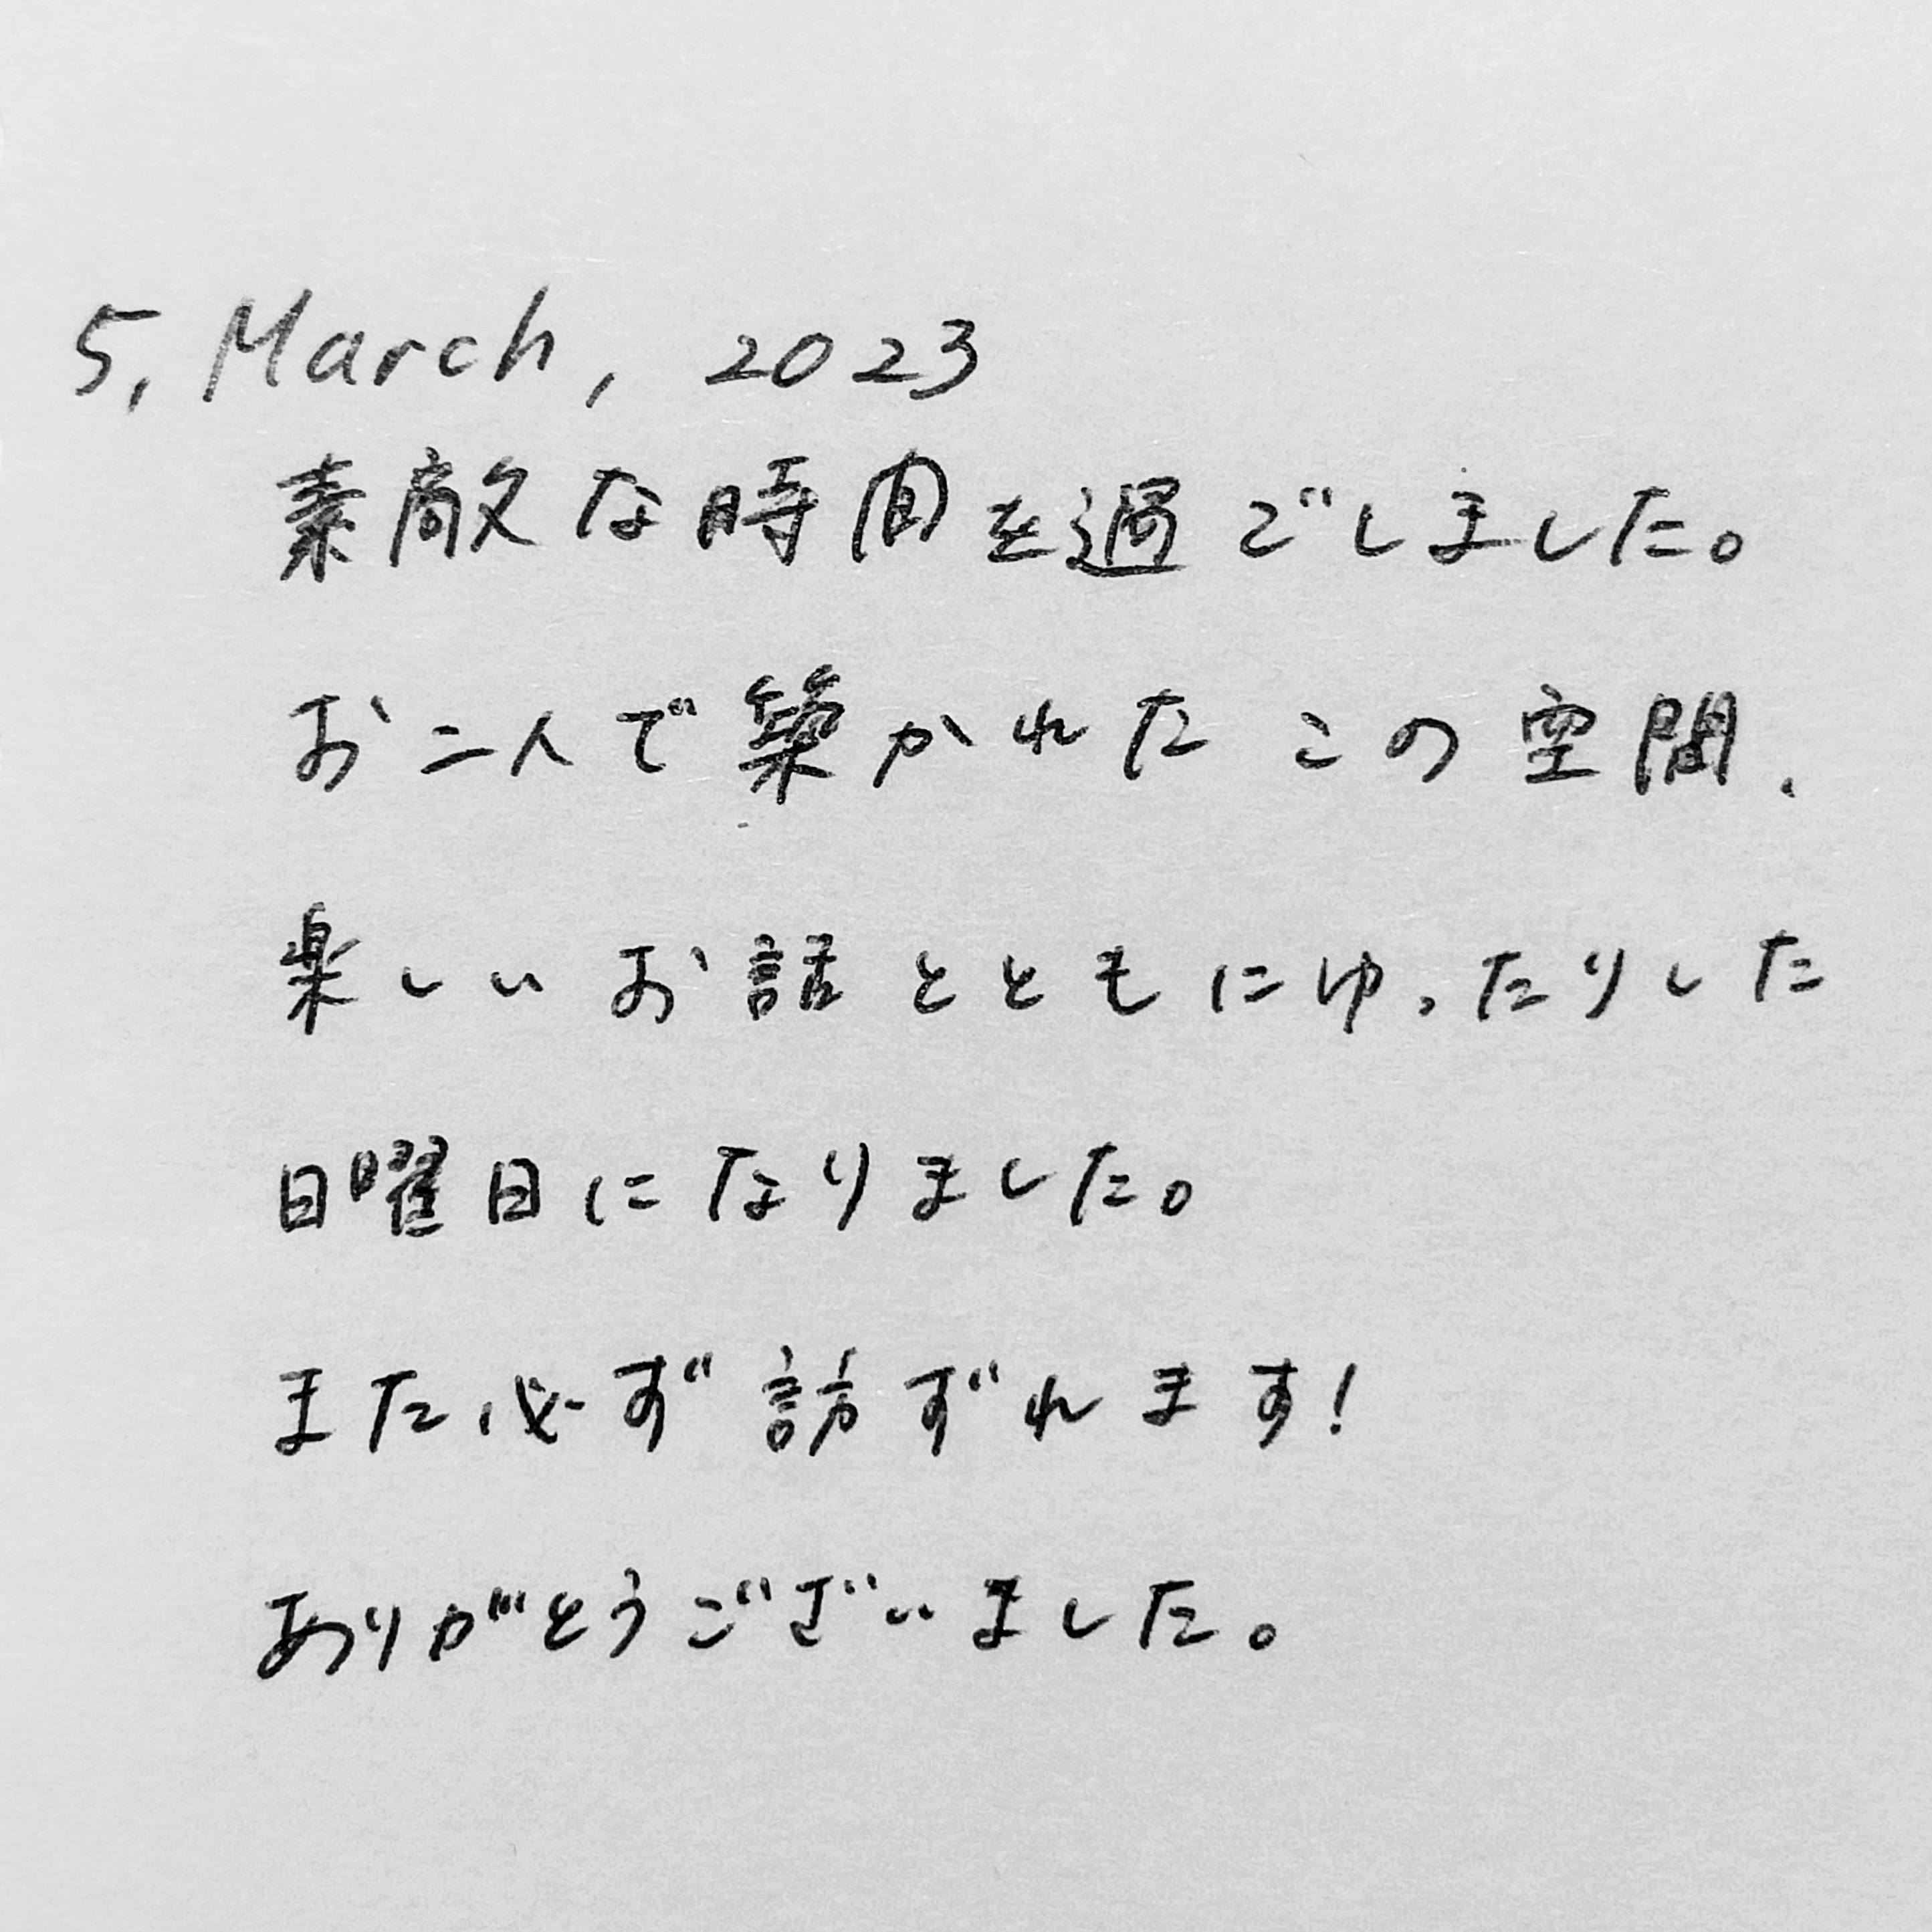 5, March, 2023
素敵な時間を過ごしました。
お二人で築かれたこの空間、
楽しいお話とともにゆったりした
日曜日になりました。
また必ず訪ずれます!
ありがとうございました。